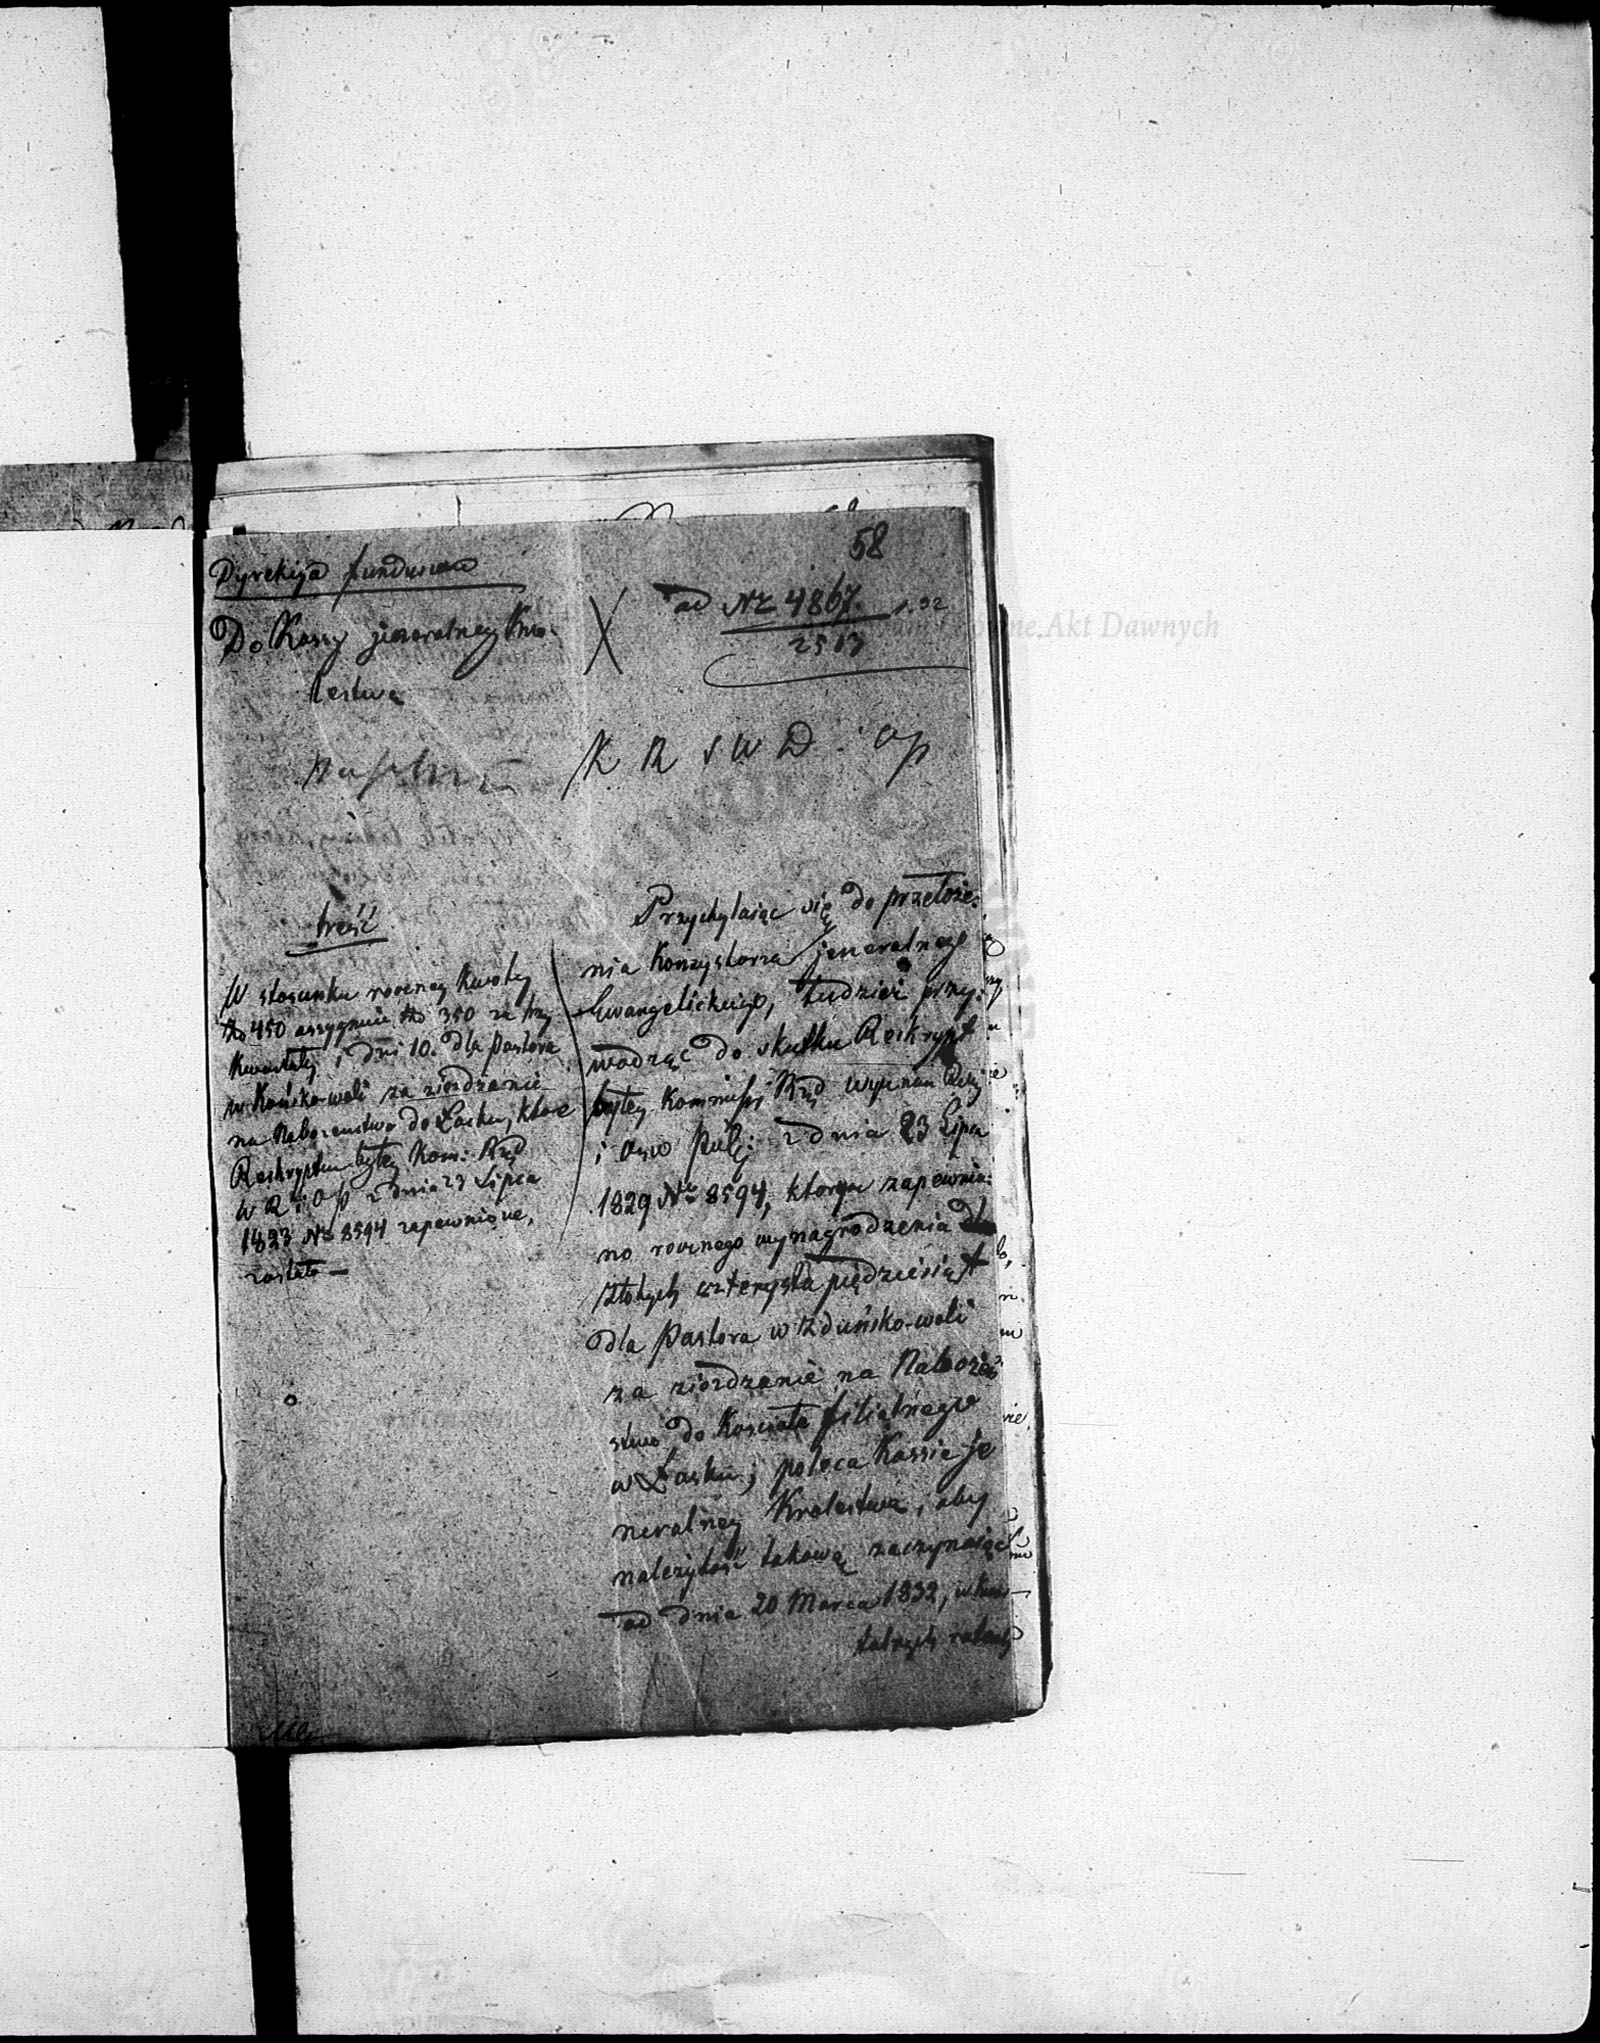 58
Dyrekcja funduszów
ad Nr 4867.
2513
Do Kassy jeneralney Kró-
lestwa
K R S W D: OP
treść
W stosunku roczney kwoty
Zło 450 assygnuie Zło 350 za trzy
kwartały i dni 10. dla pastora
w Zduńsko-woli za zieżdzanie
na Nabozenstwo do Łasku, które
Reskryptem byłey Kom: Rząd
W R: i O p z dnia 23 Lipca
1829 Nr 8594 zapewnione,
zostało —
Przychylaiąc się do przełoże-
nia Konzystorza jeneralnego
Ewangelickiego, tudzież przy-
wodząc do skutku Reskrypt
byłey Kommissyi Rząd Wyznan Relig
i Ośw Publ: z dnia 23 Lipca
1829 Nr 8594, którym zapewnio-
no rocznego wynagrodzenia
złotych czterysta pięćdziesiąt
dla Pastora w Zduńsko-woli
za zieżdzanie na Naboźeń-
stwo do Kościoła filialnego
w Łasku; poleca Kassie je
neralney Królestwa, aby
należytość takową zaczynaiąc
od dnia 20 Marca 1832, w kwar-
talnych ratach
Archiwum Główne Akt Dawnych